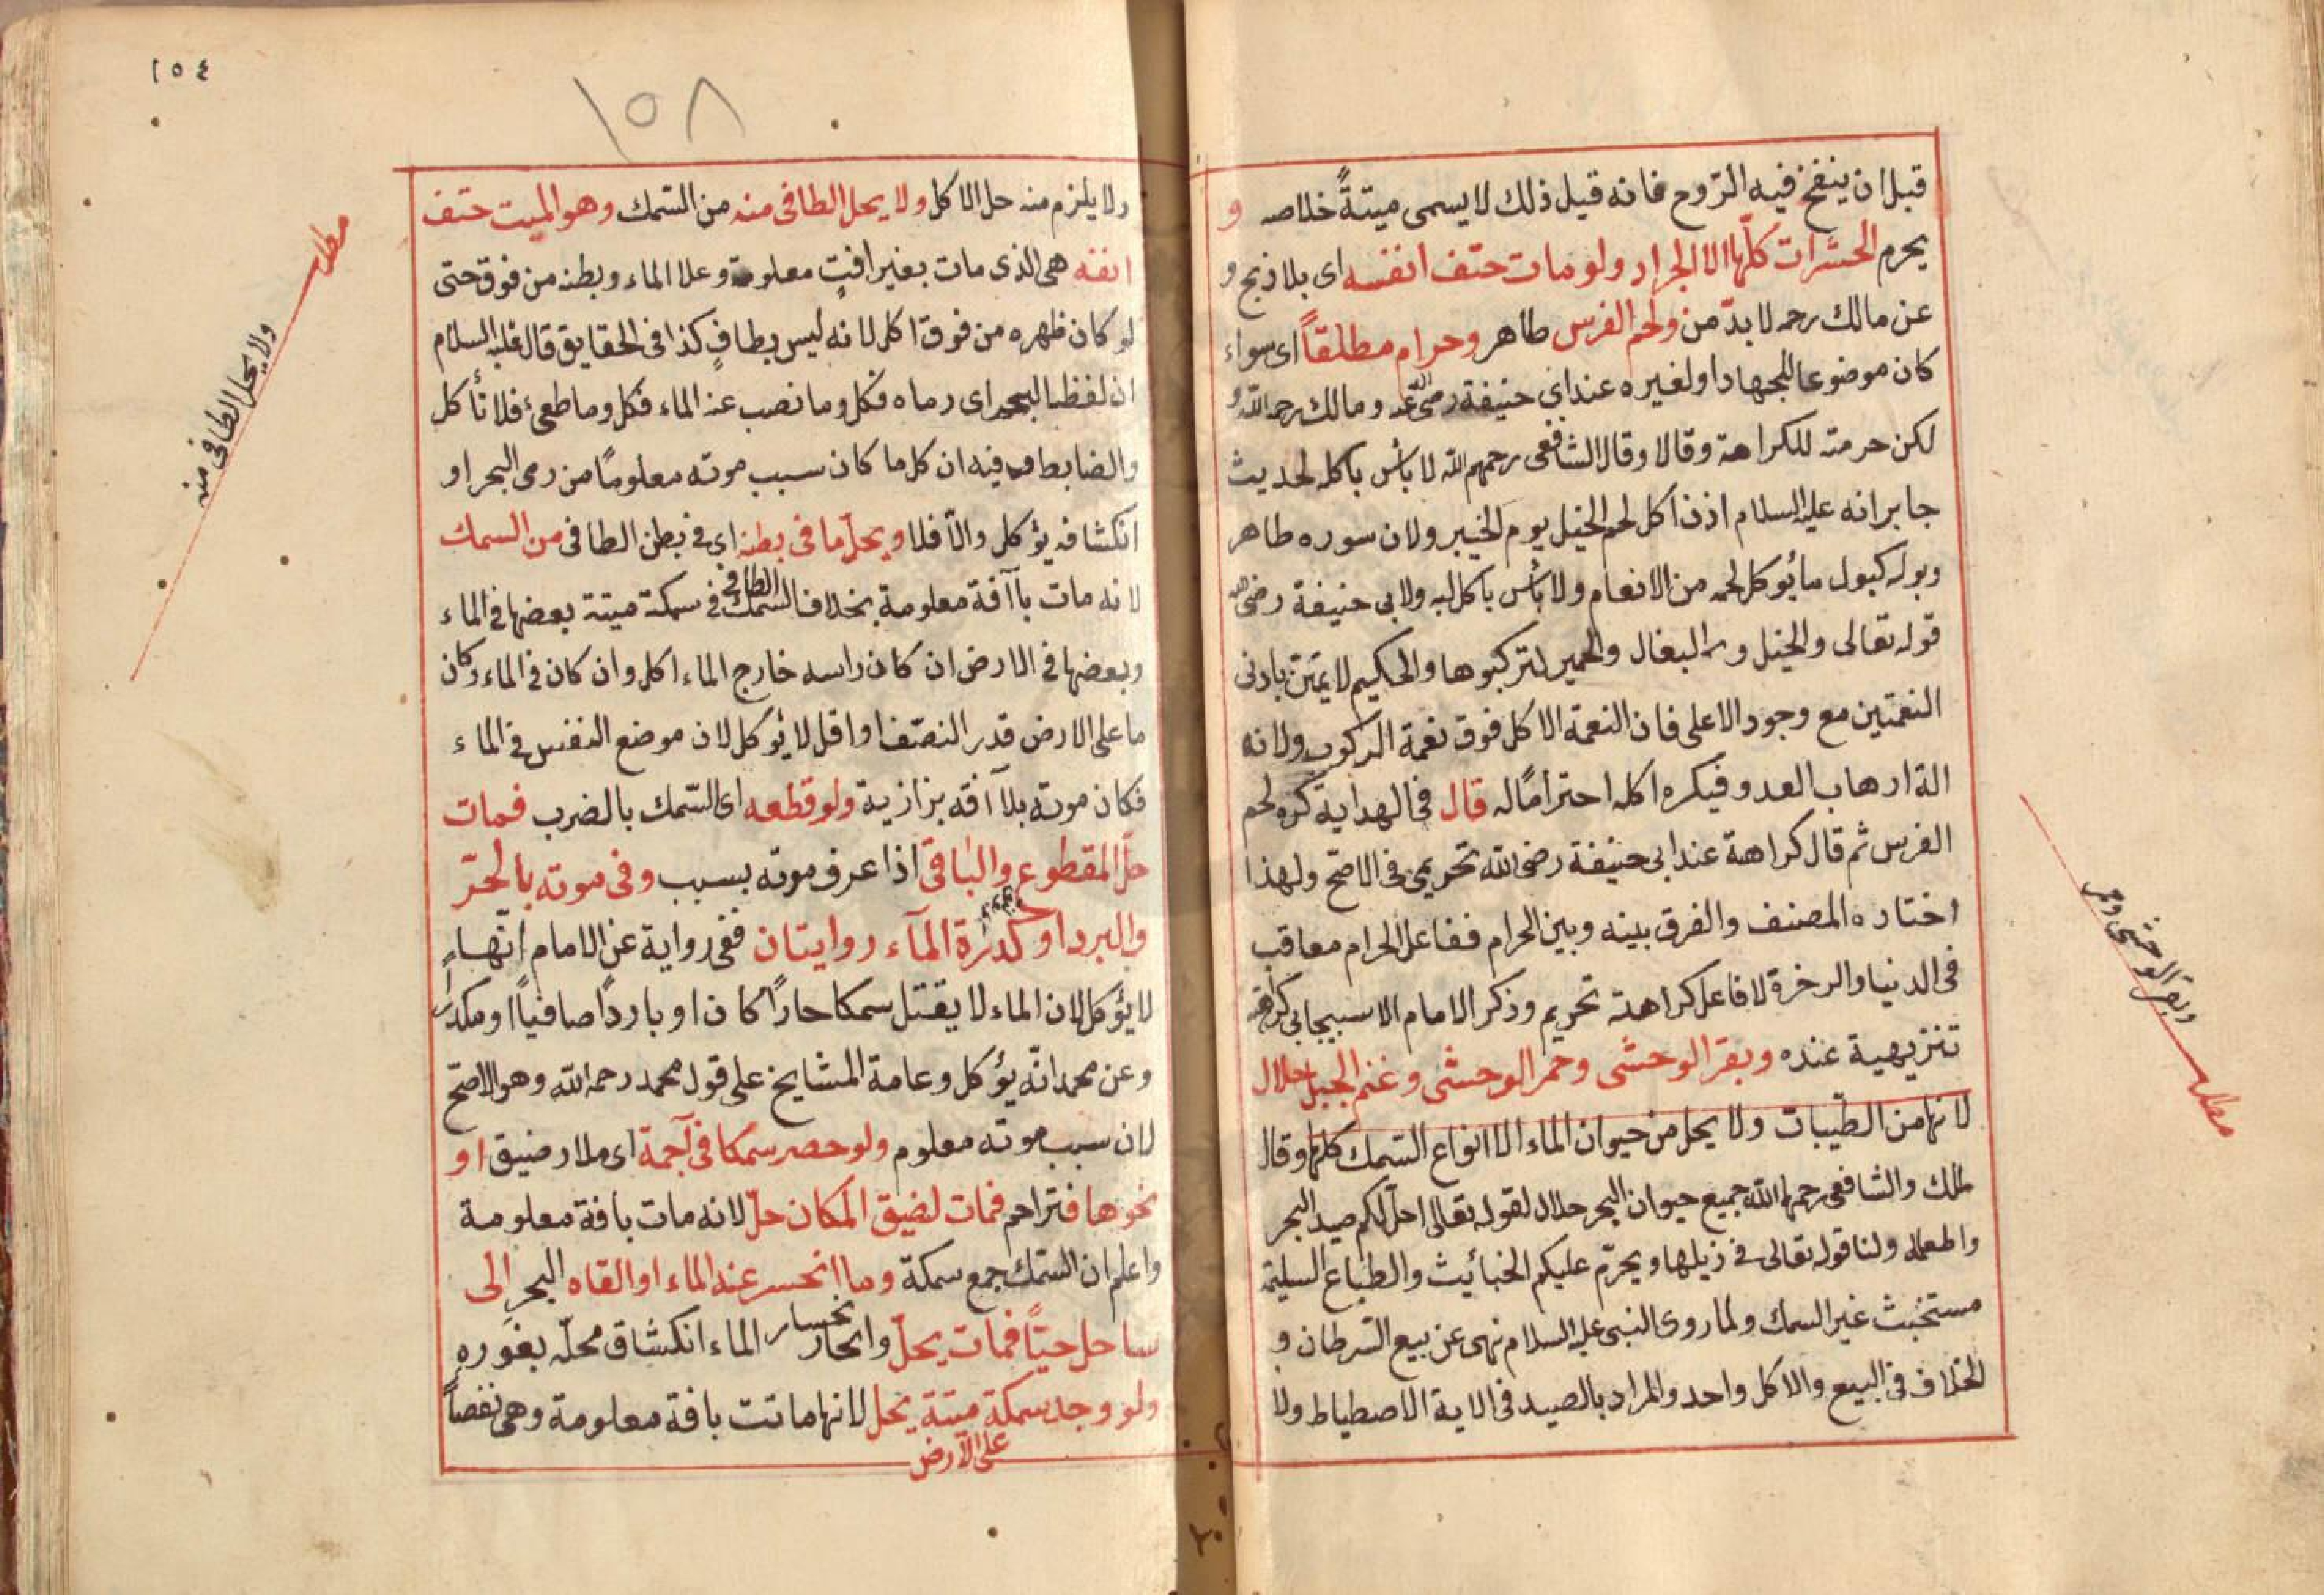 قبل ان ينفخ فيه الرّوح فانه قبل ذلك لا يسمى ميتةً خلاصه و
يحرم الحشرات كلّها الا الجراد ولو مات حتف انفسه اى بلا ذبح و
عن مالك رحمه لا بدّ من ولحم الفرس طاهر وحرام مطلقاً اى سواء
كان موضوعا للجهاد او لغيره عند ابى حنيفة رضى الله عنه ومالك رحمه الله و
لكن حرمته للكراهة وقالا وقال الشافعى رحمهم الله لا بأس بأكله لحديث
جابر انه عليه السلام اذن اكل لحم الخيل يوم الخيبر ولان سوره طاهر
وبوله كبول ما يؤكل لحمه من الانعام ولا بأس باكل لبه ولابى حنيفة رضى الله
قوله تعالى والخيل والبغال والحمير لتركبوها والحكيم لا يمتن بادنى
النعمتين مع وجود الاعلى فان النعمة الاكل فوق نعمة الركوب ولانه
الة ارهاب العدو فيكره اكله احتراما له قال فى الهداية كره لحم
الفرس ثم قال كراهة عند ابى حنيفة رضى الله تحريمى فى الاصحّ ولهذا
اختاره المصنف والفرق بينه وبين الحرام ففاعل الحرام معاقب
فى الدنيا والاخرة لا فاعل كراهة تحريم وذكر الامام الاسبيجابى كراهة
تنزيهية عنده وبقر الوحشى وحمر الوحشى وغنم الجبل حلال
لانها من الطّيبات ولا يحل من حيوان الماء الا انواع السّمك كلها وقال
مالك والشافعى رحمهما الله جميع حيوان البحر حلال لقوله تعالى احلّ لكم صيد البحر
واطعامه ولنا قوله تعالى فى ذيلها ويحرّم عليكم الخبائيث والطباع السليمة
مستخبث غير السمك ولما روى النبى عليه السلام نهى عن بيع السّرطان و
الخلاف فى البيع والاكل واحد والمراد بالصيد فى الاية الاصطياط ولا
وبقر الوحشى وحمر
مطلب
١٥٤
١٥٨
ولا يلزم منه حل الاكل ولا يحل الطافى منه من السّمك وهو الميت حتف
انفه هى الذى مات بغير افتٍ معلومة وعلا الماء وبطنه من فوق حتى
لو كان ظهره من فوق اكل لانه ليس بطافٍ كذا فى الحقايق قال عليه السلام
ان لفظها البحر اى رماه فكل وما نصب عنه الماء فكل وما طفى فلا تأكل
والضابط فيه ان كل ما كان سبب موته معلومًا من رمى البحر او
انكشافه يؤكل والّا فلا ويحلّ ما فى بطنه اى فى بطن الطافى من السمك
لانه مات بآفة معلومة بخلاف السّمك الطافى فى سمكة ميتة بعضها فى الماء
وبعضها فى الارض ان كان راسه خارج الماء اكل وان كان فى الماء وكان
ما على الارض قدر النصف او اقل لا يؤكل لان موضع النفس فى الماء
فكان موته بلا آفة بزازية ولو قطعه اى السّمك بالضرب فمات
حلّ المقطوع والباقى اذا عرف موته بسبب وفى موته بالحرّ
والبرد او كدرة المآء روايتان ففى رواية عن الامام انّها
لا يؤكل لان الماء لا يقتل سمكا حارًا كان او باردًا صافياً او مكدراً
وعن محمد انّه يؤكل وعامة المشايخ على قول محمد رحمه الله وهو الاصحّ
لان سبب موته معلوم ولو حصر سمكا فى آجمة اى ملار ضيق او
نحوها فتراحم فمات لضيق المكان حلّ لانه مات بافة معلومة
واعلم ان السّمك جمع سمكة وما انحسر عنه الماء او القاه البحر الى
ساحل حيّاً فمات يحلّ وانحسار الماء انكشاق محلّه بغوره
ولو وجد سمكة ميتة على الآرض يحل لانها ماتت بافة معلومة وهى نفصاً
مطلب
ولا يحل الطافى منه